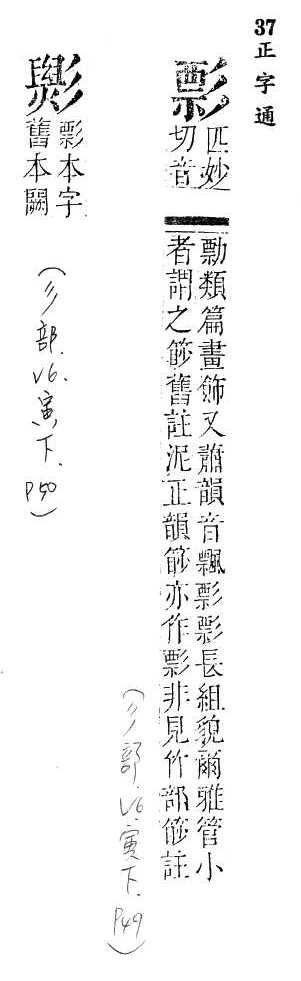 37正字通
彯
匹妙
切音
勡類篇畫飾又蕭韻音飄彯彯長組貌爾雅管小
者謂之篎舊註泥正韻篎亦作彯非見竹部篎註
(彡部. V6. 寅下. P49)
彯本字
舊本闕
(彡部. V6. 寅下. P50)